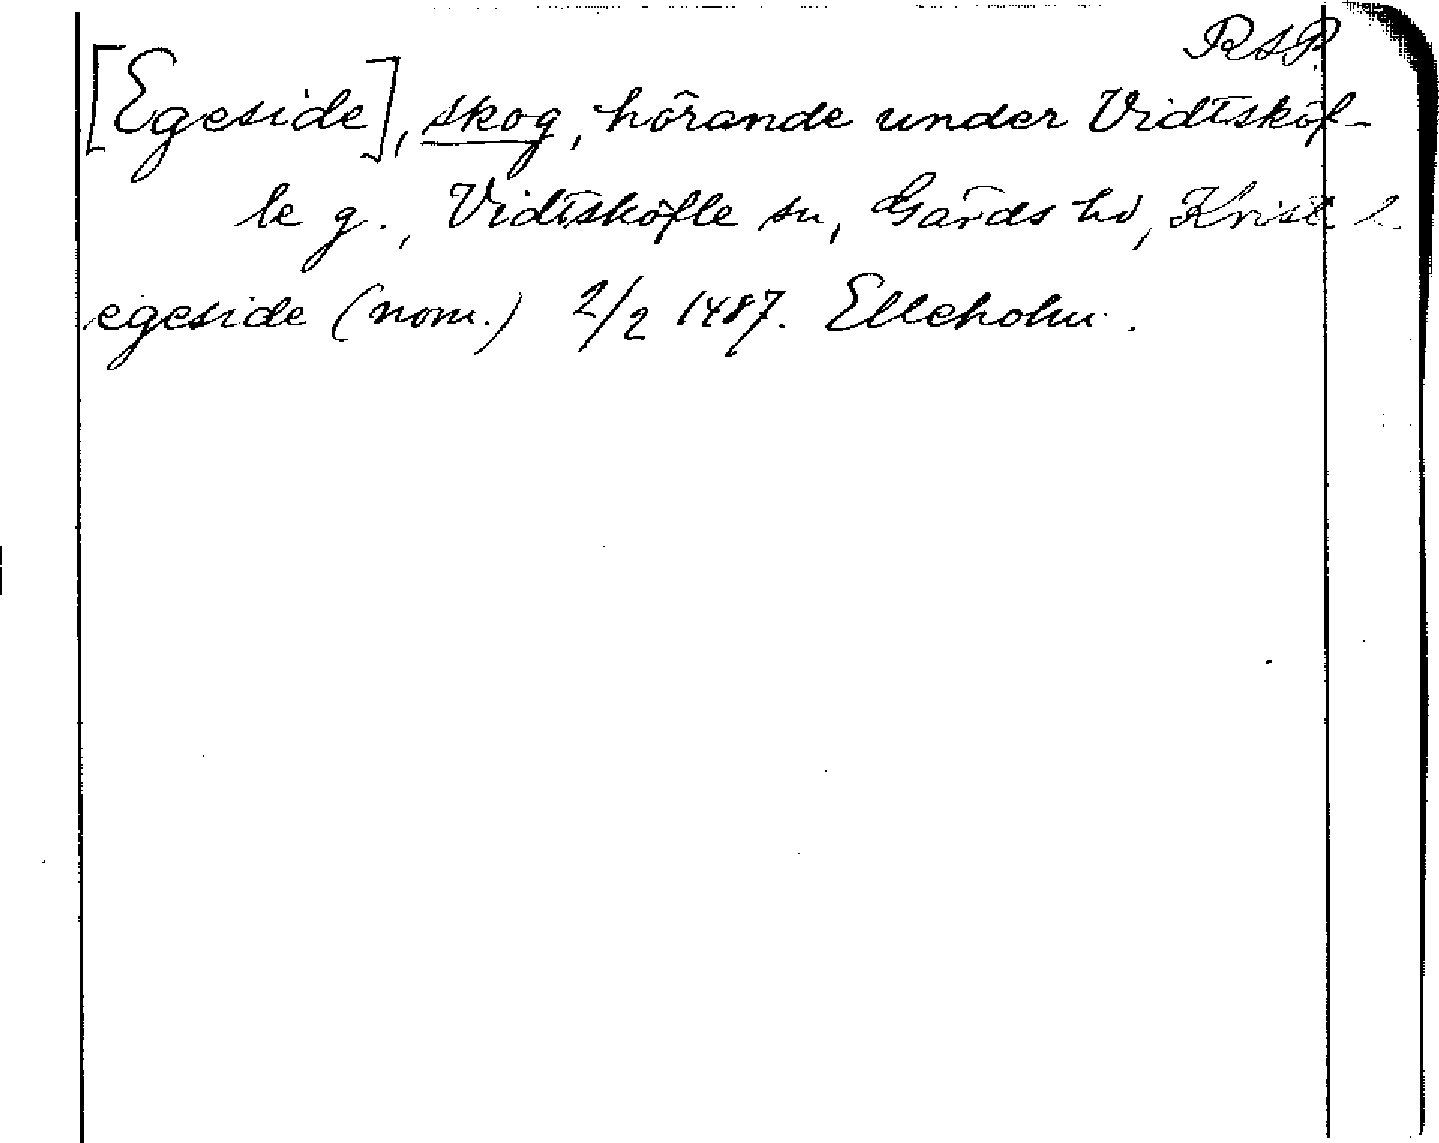 RAP.
[Egeside], skog, hörande under Vidtsköf-
le g., Vidtsköfle sn, Gärds hd, Krist. l.
egeside (nom.) 2/2 1487. Elleholm.